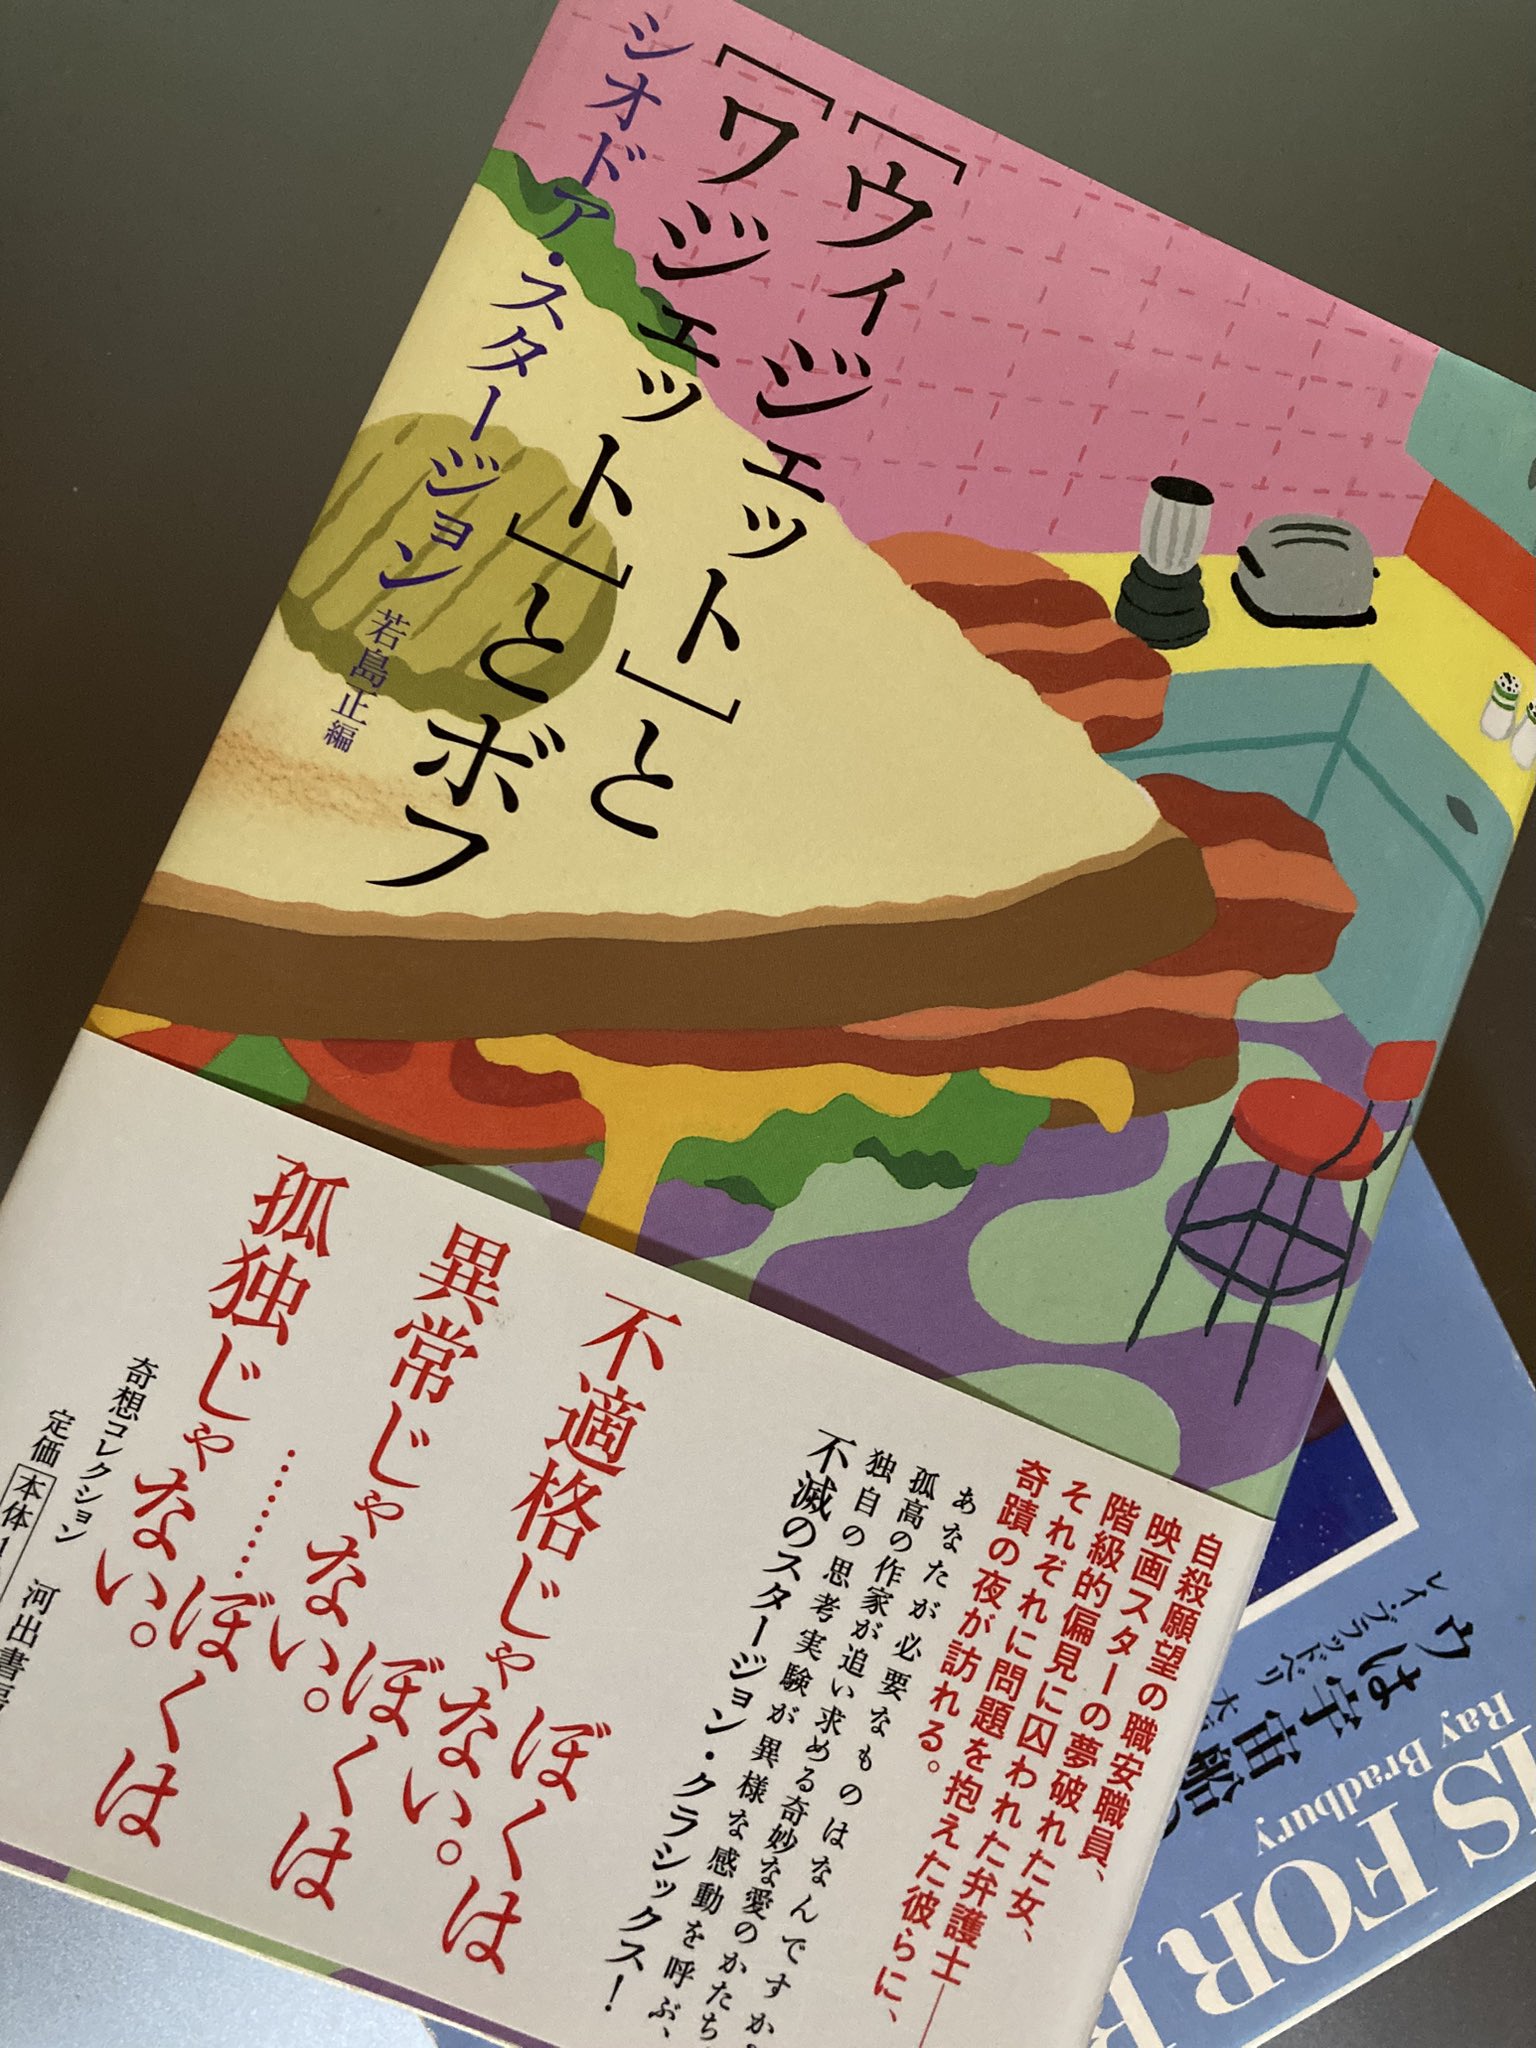 [ウィジェット]と
[ワジェット]とボフ
シオドア・スタージョン
若島正編
自殺願望の職安職員、
映画スターの夢破れた女、
階級的偏見に囚われた弁護士——
それぞれに問題を抱えた彼らに、
奇蹟の夜が訪れる。
あなたが必要なものはなんですか。
孤高の作家が追い求める奇妙な愛のかたち
独自の思考実験が異様な感動を呼ぶ、
不滅のスタージョン・クラシックス!
ぼくは
不適格じゃない。
ぼくは
異常じゃない。
ぼくは
………
孤独じゃない。
奇想コレクション
定価 本体1
河出書房
ウは宇宙船の
レイ・ブラッドベリ
IS FOR R
Ray Bradbury